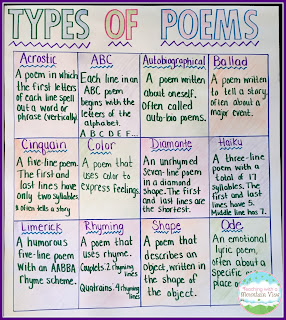 TYPES OF POEMS
Acrostic
A poem in which
the first letters
of each line spell
out a word or
phrase (vertically)
ABC
Each line in an
ABC poem
begins with the
letters of the
alphabet.
A B C D E F...
Autobiographical
A poem written
about oneself.
Often called
auto-bio poems.
Ballad
A poem written
to tell a story,
often about a
major event.
Cinquain
A five-line poem.
The first and
last lines have
only two syllables
& often tells a story
Color
A poem that
uses color to
express feelings.
Diamante
An unrhymed
seven-line poem
in a diamond
shape. The first
and last lines are
the shortest.
Haiku
A three-line
poem with a
total of 17
syllables. The
first and last
lines have 5.
Middle line has 7.
Limerick
A humorous
five-line poem
with an AABBA
rhyme scheme.
Rhyming
A poem that
uses rhyme.
Couplets: 2 rhyming
lines
Quatrains: 4 rhyming
lines
Shape
A poem that
describes an
object, written
in the shape
of the object.
Ode
An emotional
lyric poem,
often about a
specific
place o
Teaching with a
Mountain View